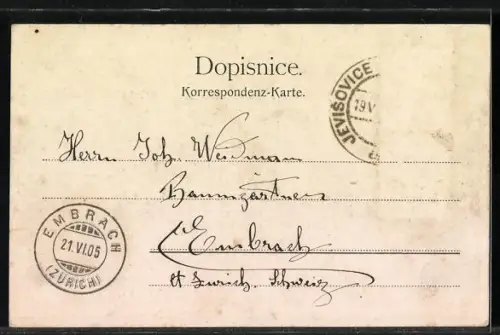 Dopisnice.
Korrespondenz-Karte.
JEVIŠOVICE
19 V
Herrn Joh. Weidmann
Baumgärtner
Embrach
Kt Zurich. Schweiz
EMBRACH
21.VI.05
(ZÜRICH)